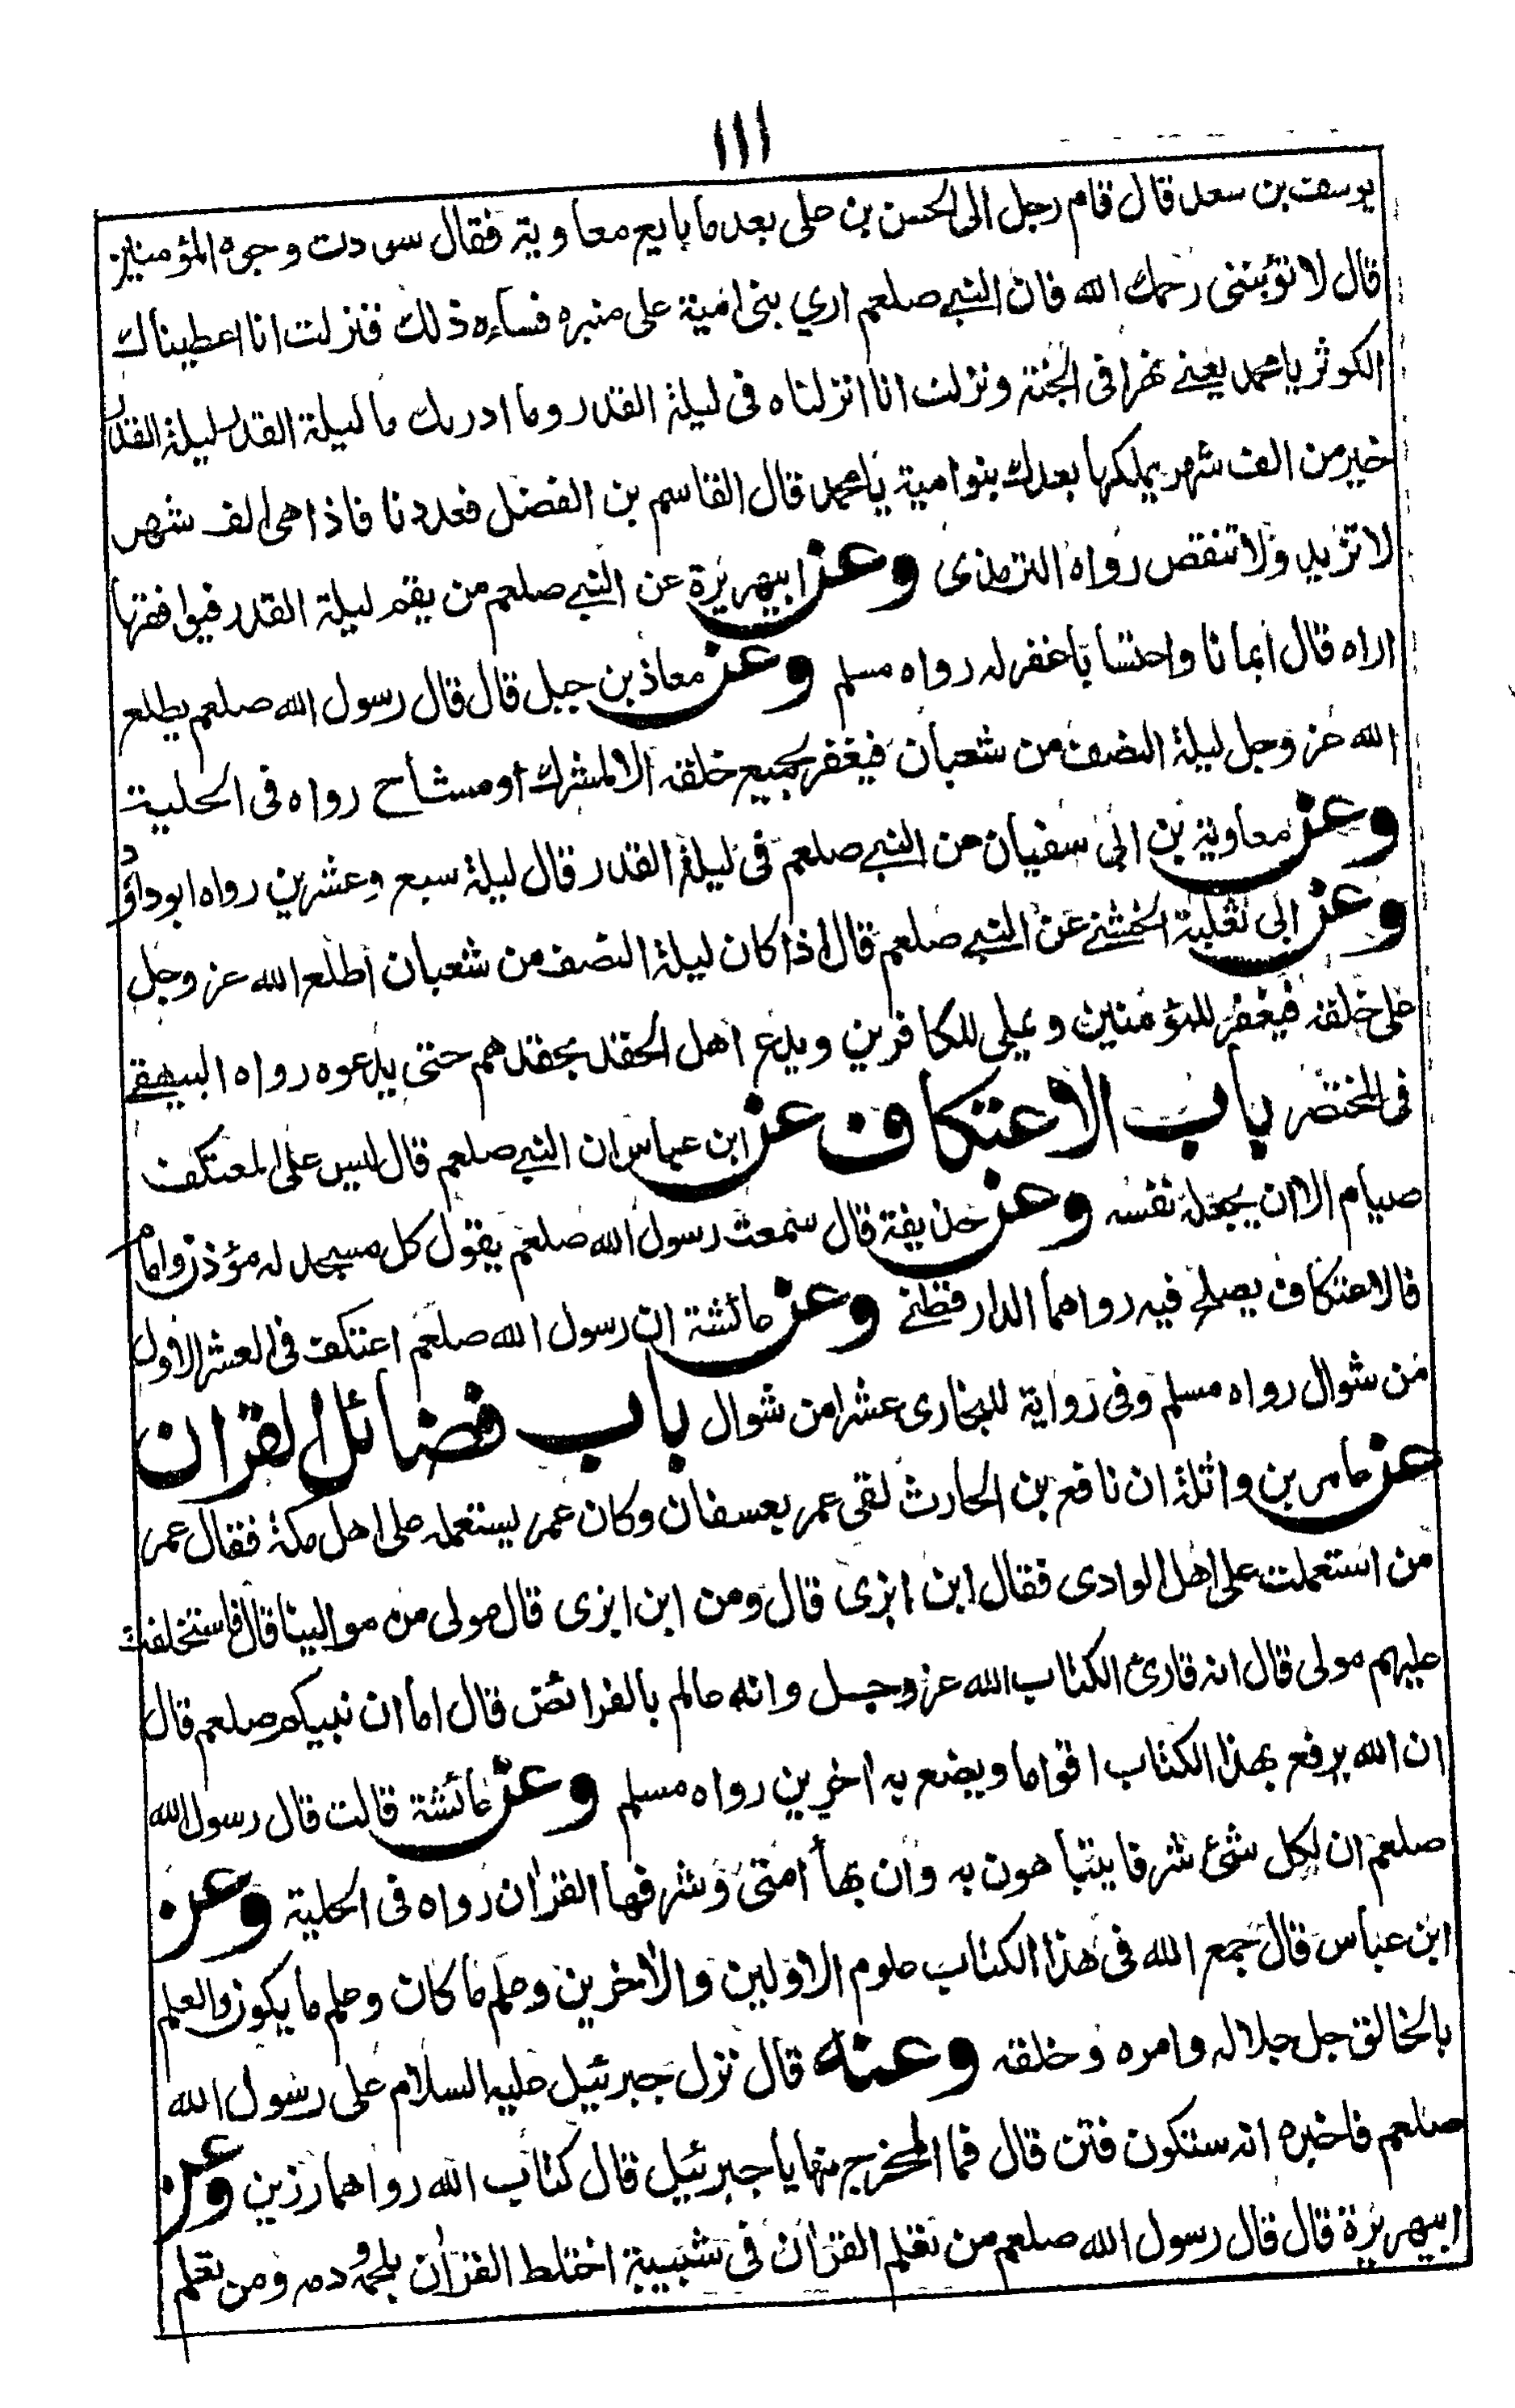 ١١١
يوسف بن سعد قال قام رجل الى الحسن بن على بعد ما بايع معاوية فقال سودت وجوه المؤمنين
قال لا تؤبننى رحمك الله فان النبے صلعم اري بنى امية على منبره فساءه ذلك فنزلت انا اعطيناك
الكوثر يا محمد يعنے نهرا فى الجنة ونزلت انا انزلناه فى ليلة القدر وما ادريك ما ليلة القدر ليلة القدر
خير من الف شهر يملكها بعدك بنوامية يا محمد قال القاسم بن الفضل فعددنا فاذا هى الف شهر
لا تزيد ولا تنقص رواه الترمذى وعن ابيهريرة عن النبے صلعم من يقم ليلة القدر فيوافقها
اراه قال ايمانا واحتسابا غفر له رواه مسلم وعن معاذ بن جبل قال قال رسول الله صلعم يطلع
الله عز وجل ليلة النصف من شعبان فيغفر لجميع خلقه الا لمشرك او مشاحن رواه فى الحلية
وعن معاوية بن ابى سفيان عن النبے صلعم فى ليلة القدر قال ليلة سبع وعشرين رواه ابو داؤد
وعن ابى ثعلبة الخشنے عن النبے صلعم قال اذا كان ليلة النصف من شعبان اطلع الله عز وجل
على خلقه فيغفر للمؤمنين ويملى للكافرين ويدع اهل الحقد بحقدهم حتى يدعوه رواه البيهقے
فى المختصر باب الاعتكاف عن ابن عباس ان النبے صلعم قال ليس على المعتكف
صيام الا ان يجعله نفسه وعن حذيفة قال سمعت رسول الله صلعم يقول كل مسجد له مؤذن وامام
فالاعتكاف يصلح فيه رواهما الدارقطنے وعن عائشة ان رسول الله صلعم اعتكف فى العشر الاول
من شوال رواه مسلم وفى رواية للبخارى عشرا من شوال باب فضائل القرآن
عن عامر بن واثلة ان نافع بن الحارث لقى عمر بعسفان وكان عمر يستعمله على اهل مكة فقال عمر
من استعملت على اهل الوادى فقال ابن ابزى قال ومن ابن ابزى قال مولى من موالينا قال فاستخلفت
عليهم مولى قال انه قارئ الكتاب الله عز وجل وانه عالم بالفرائض قال اما ان نبيكم صلعم قال
ان الله يرفع بهذا الكتاب اقواما ويضع به اخرين رواه مسلم وعن عائشة قالت قال رسول الله
صلعم ان لكل شئ شرفا يتباهون به وان بهأ امتى وشرفها القرآن رواه فى الحلية وعن
ابن عباس قال جمع الله فى هذا الكتاب علوم الاولين والآخرين وعلم ما كان وعلم ما يكون والعلم
بالخالق جل جلاله وامره وخلقه وعنه قال نزل جبرئيل عليه السلام على رسول الله
صلعم فاخبره انه ستكون فتن قال فما المخرج منها يا جبرئيل قال كتاب الله رواهما رزين وعن
ابيهريرة قال قال رسول الله صلعم من تعلم القرآن فى شبيبة اختلط القرآن بلحمه ودمه ومن تعلم